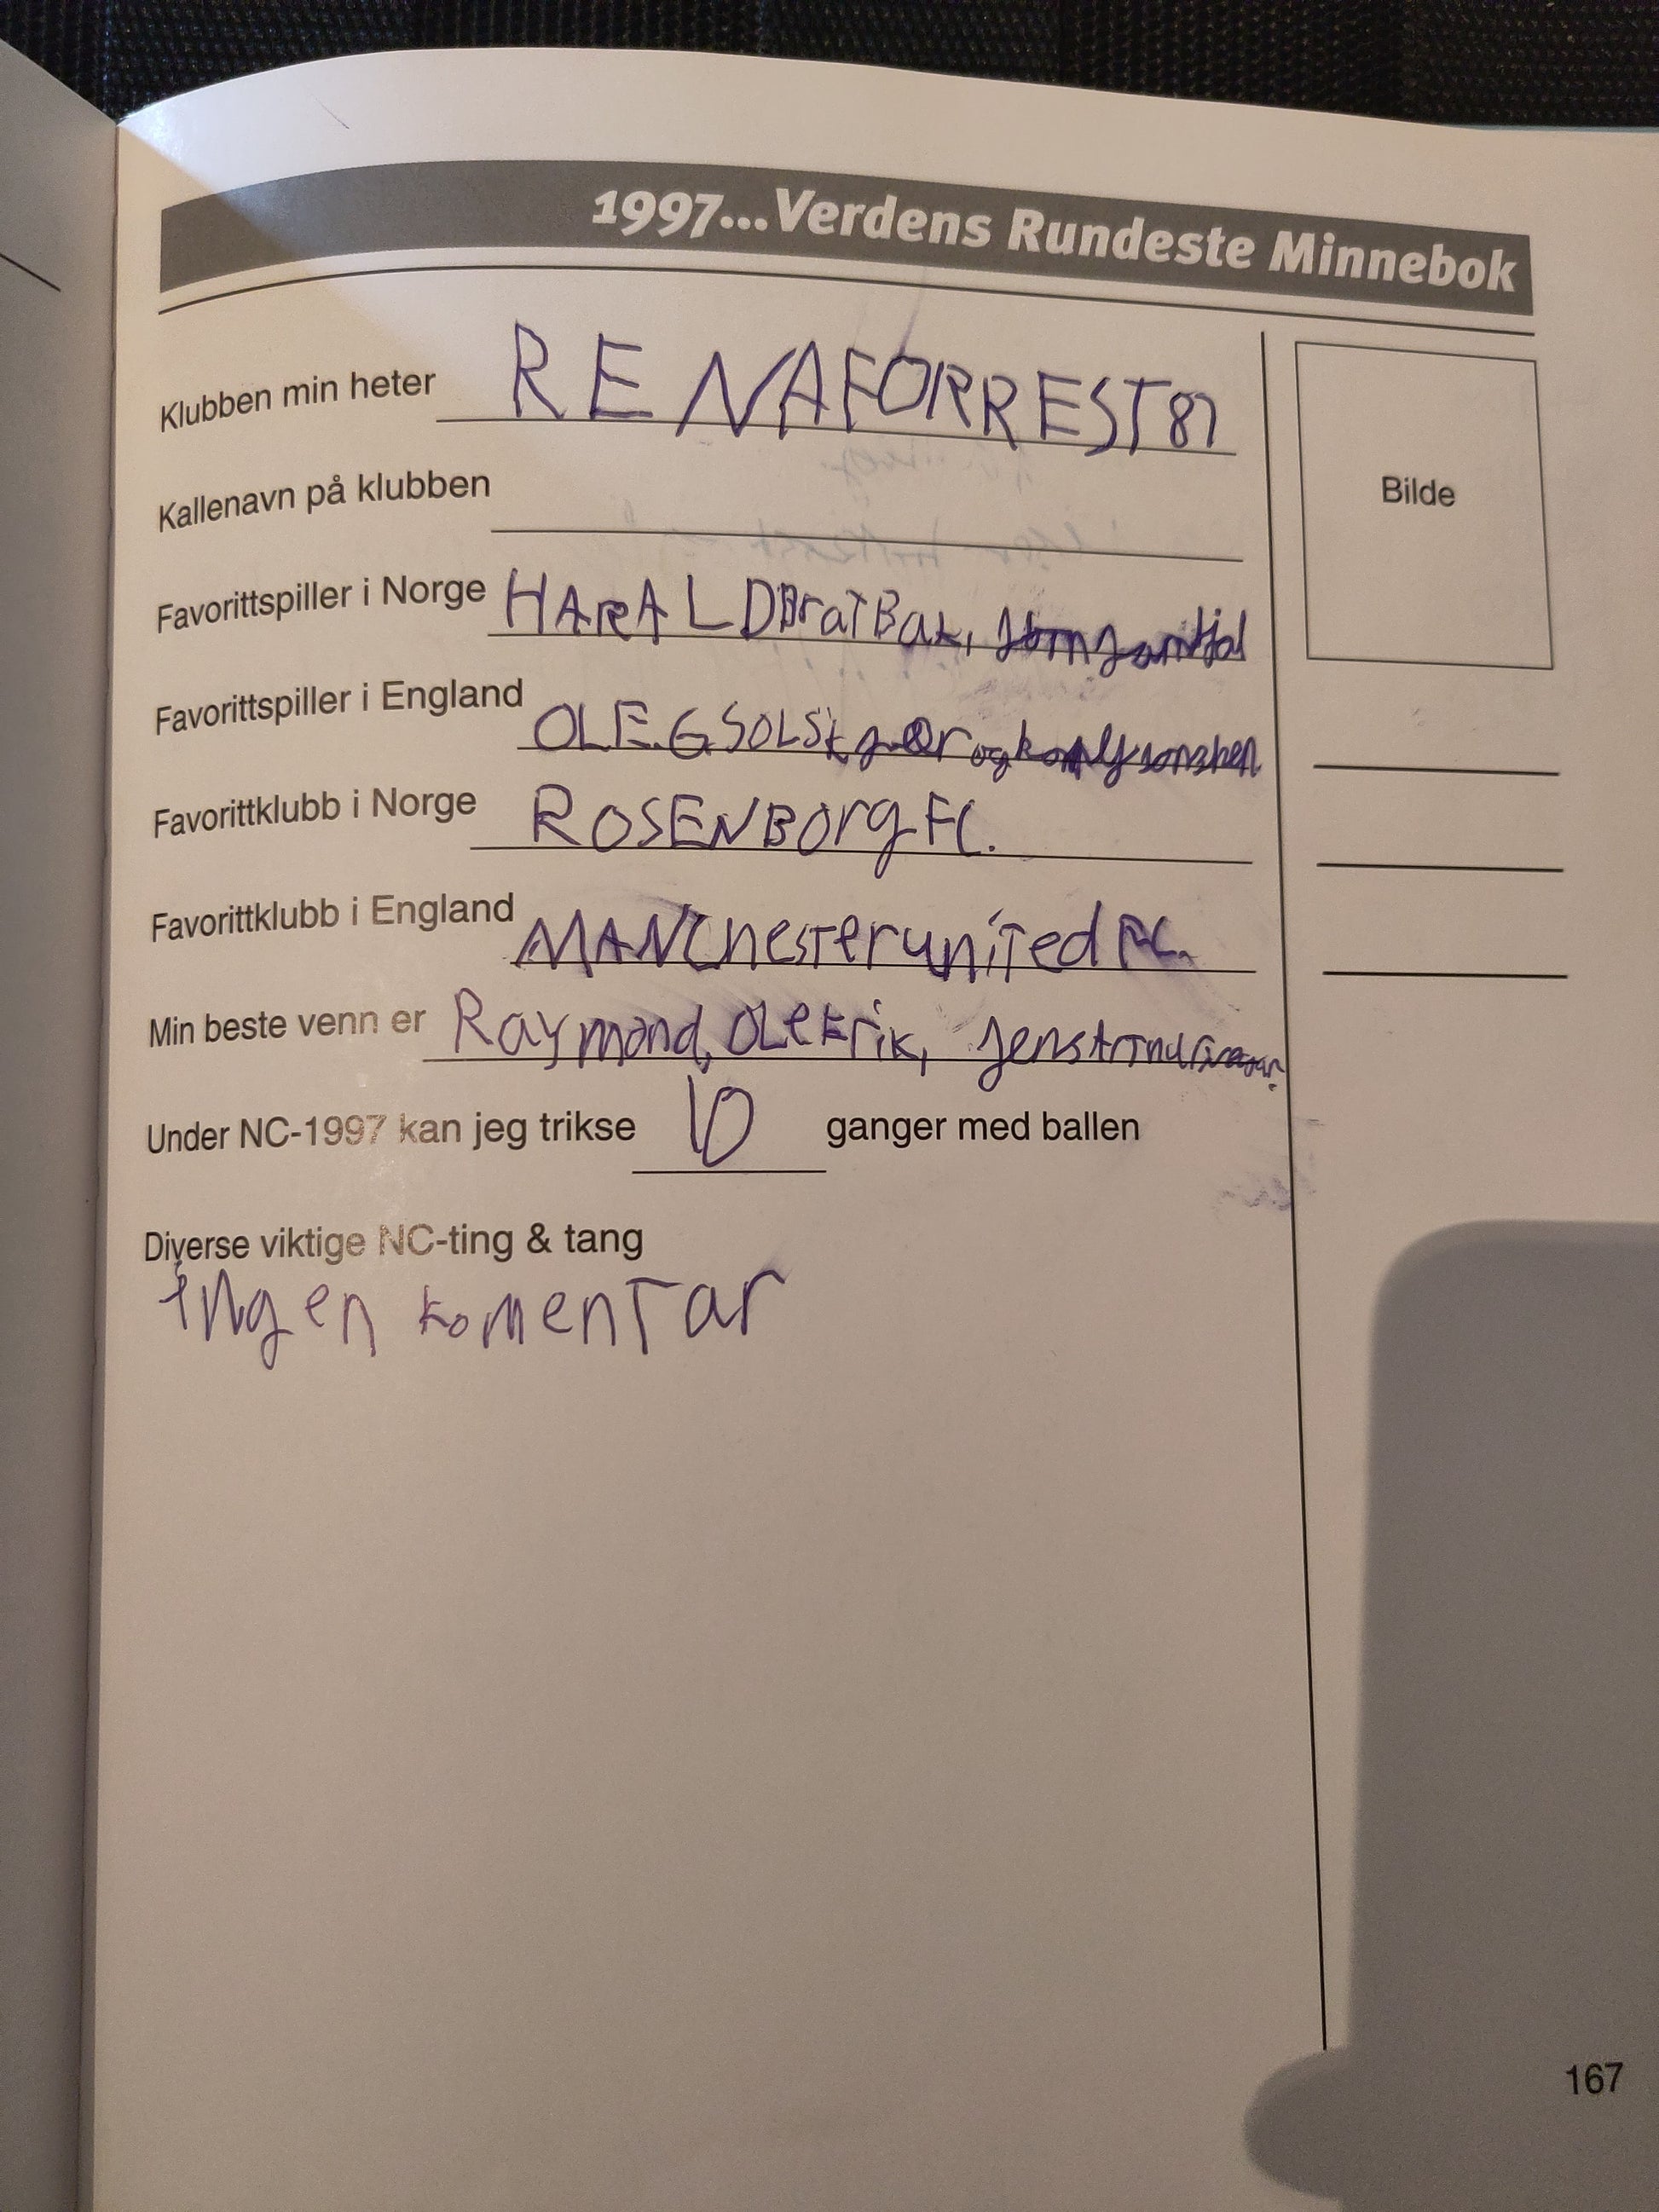 1997...Verdens Rundeste Minnebok
Klubben min heter RENAFORREST87
Bilde
Kallenavn på klubben
Favorittspiller i Norge HARALDBratBak,
Favorittspiller i England OLE.G SOLSkjær og
Favorittklubb i Norge ROSENBOrg FC.
Favorittklubb i England MANChesTerunITed FC.
Min beste venn er Raymond, OLeErik,
Under NC-1997 kan jeg trikse 10 ganger med ballen
Diverse viktige NC-ting & tang
Ingen komentar
167